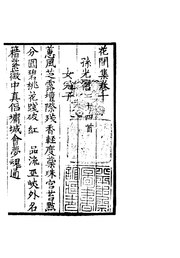 花間集卷十
孫光憲 十四首
女冠子
蕙風芝露壇際殘香輕度蘂珠宮苔點
分圓碧桃花踐破紅 品流巫峽外名
籍紫微中真侶墉城會夢魂通